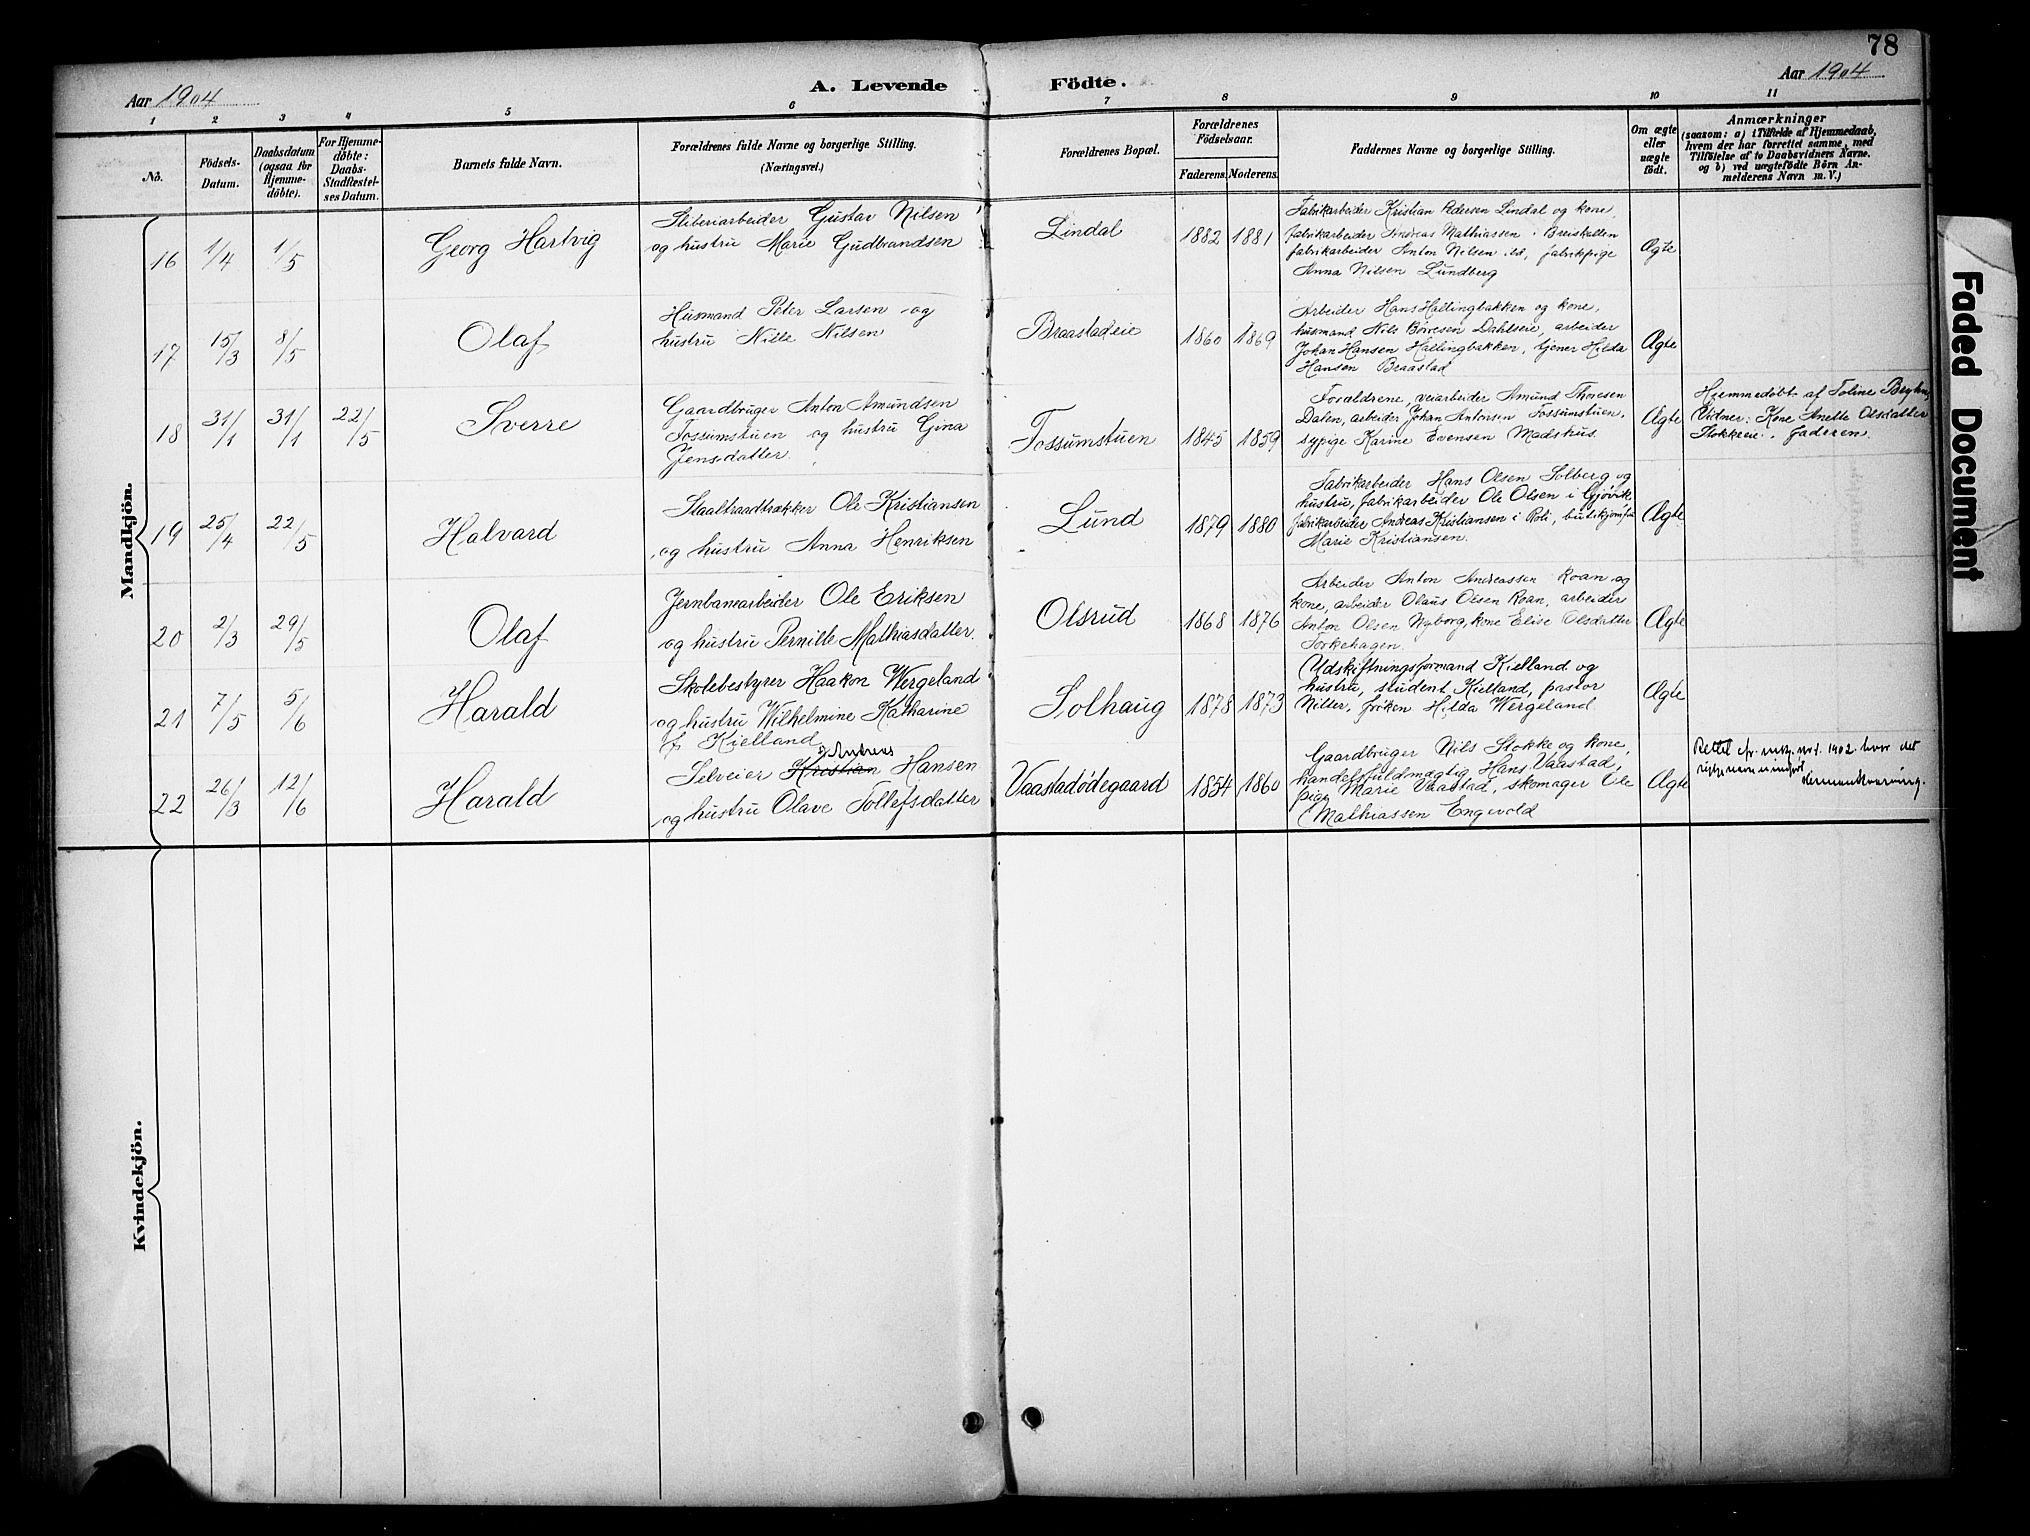 78
Aar 1904
A. Levende Födte.
Aar 1904
1 2 3 4 5 6 7 8 9 10 11
No.
Födsels-
Datum.
Daabsdatum
(ogsaa for
Hjemme-
döbte).
For Hjemme-
döbte:
Daabs-
Stadfæstel-
ses Datum.
Barnets fulde Navn.
Forældrenes fulde Navne og borgerlige Stilling.
(Næringsvei.)
Forældrenes Bopæl.
Forældrenes
Födselsaar.
Faderens. Moderens.
Faddernes Navne og borgerlige Stilling.
Om ægte
eller
uægte
födt.
Anmærkninger
(saasom: a) i Tilfælde af Hjemmedaab,
hvem der har forrettet samme, med
Tilföielse af to Daabsvidners Navne.
og b) ved uægtefödte Börn An-
melderens Navn m. V.)
Mandkjön.
16 1/4 1/5 Georg Hartvig
Sliberiarbeider Gustav Nilsen
og hustru Marie Gudbrandsen
Lindal 1882 1881
Fabrikarbeider Kristian Pedersen Lindal og kone,
fabrikarbeider Andreas Mathiassen i Breiskallen
fabrikarbeider Anton Nilsen ibd, fabrikpige
Anna Nilsen Lundberg
Ægte
17 15/3 8/5 Olaf
Husmand Peter Larsen og
hustru Nille Nilsen
Braastadeie 1860 1869
Arbeider Hans Hallingbakken og kone,
husmand Nils Børresen Dahlseie, arbeider
Johan Hansen Hallingbakken, tjener Hilda
Hansen Braastad
Ægte
18 31/1 31/1 22/5 Sverre
Gaardbruger Anton Amundsen
Fossumstuen og hustru Gina
Jensdatter.
Fossumstuen 1845 1859
Forældrene, veiarbeider Amund Thoresen
Dalen, arbeider Johan Antonsen Fossumstuen,
sypige Karine Evensen Madshus.
Ægte
Hjemmedøbt af Toline
Vidner: Kone Anette Olsdatter
Stokkeeie. Faderen.
19 25/4 22/5 Halvard
Staaltraadtrækker Ole Kristiansen
og hustru Anna Henriksen
Lund 1879 1880
Fabrikarbeider Hans Olsen Solberg og
hustru, fabrikarbeider Ole Olsen i Gjøvik
fabrikarbeider Andreas Kristiansen i Roli,
Marie Kristiansen.
Ægte
20 2/3 29/5 Olaf
Jernbanearbeider Ole Eriksen
og hustru Pernille Mathiasdatter.
Olsrud 1868 1876
Arbeider Anton Andreassen Roan og
kone, arbeider Olaus Olsen Roan, arbeider
Anton Olsen Nyborg, kone Elise Olsdatter
Torkehagen.
Ægte
21 7/5 5/6 Harald
Skolebestyrer Haakon Wergeland
og hustru Wilhelmine Katharine
f. Kielland
Solhaug 1878 1873
Udskiftningsformand Kielland og
hustru, student Kielland, pastor
Nitter, frøken Hilda Wergeland
Ægte
22 26/3 12/6 Harald
Andreas
Selveier Kristian Hansen
og hustru Olave Tollefsdatter
Vaastadødegaard 1854 1860
Gaardbruger Nils Stokke og kone,
handelsfuldmægtig Hans Vaastad,
pige Marie Vaastad, skomager Ole
Mathiassen Engevold
Ægte
Rettet cfr. 1902. hvor det
Kvindekjön.
Faded Document